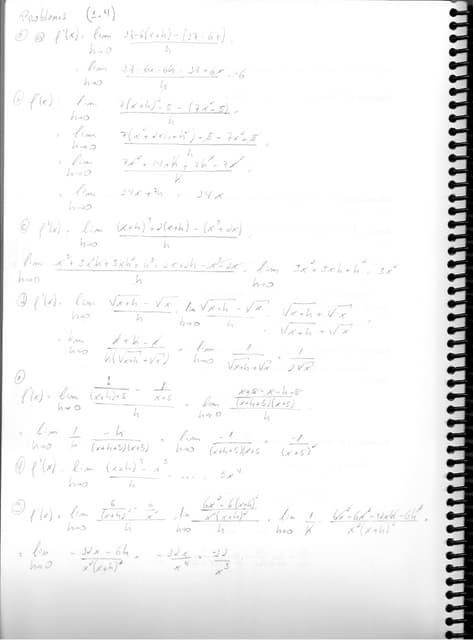 Problems (2.4)
② ⓐ f'(x) = lim h→0 (17-6(x+h) - (17-6x))/h
= lim h→0 (17-6x-6h-17+6x)/h = -6
ⓑ f'(x) = lim h→0 (7(x+h)²-5-(7x²-5))/h
= lim h→0 (7(x²+2xh+h²)-5-7x²+5)/h
= lim h→0 (7x²+14xh+7h²-7x²)/h
= lim h→0 14x+7h = 14x
ⓒ f'(x) = lim h→0 ((x+h)³+2(x+h)-(x³+2x))/h
lim h→0 (x³+3x²h+3xh²+h³+2x+2h-x³-2x)/h = lim h→0 3x²+3xh+h² = 3x²
ⓓ f'(x) = lim h→0 (√x+h - √x)/h = lim h→0 (√x+h - √x)/h · (√x+h + √x)/(√x+h + √x) =
= lim h→0 (x+h-x)/(h(√x+h+√x)) = lim h→0 1/(√x+h+√x) = 1/(2√x)
f'(x) = lim h→0 (1/((x+h)+5) - 1/(x+5))/h = lim h→0 ((x+5-x-h-5)/((x+h+5)(x+5)))/h
= lim h→0 1/h · -h/((x+h+5)(x+5)) = lim h→0 -1/((x+h+5)(x+5) = -1/(x+5)²
ⓕ f'(x) = lim h→0 ((x+h)⁵ - x⁵)/h = .... = 5x⁴
f'(x) = lim h→0 (6/(x+h)² - 6/x²)/h = lim h→0 ((6x²-6(x+h)²)/(x²(x+h)²))/h = lim h→0 1/h · (6x²-6x²-12xh-6h²)/(x²(x+h)²) =
= lim h→0 (-12x-6h)/(x²(x+h)²) = -12x/x⁴ = -12/x³